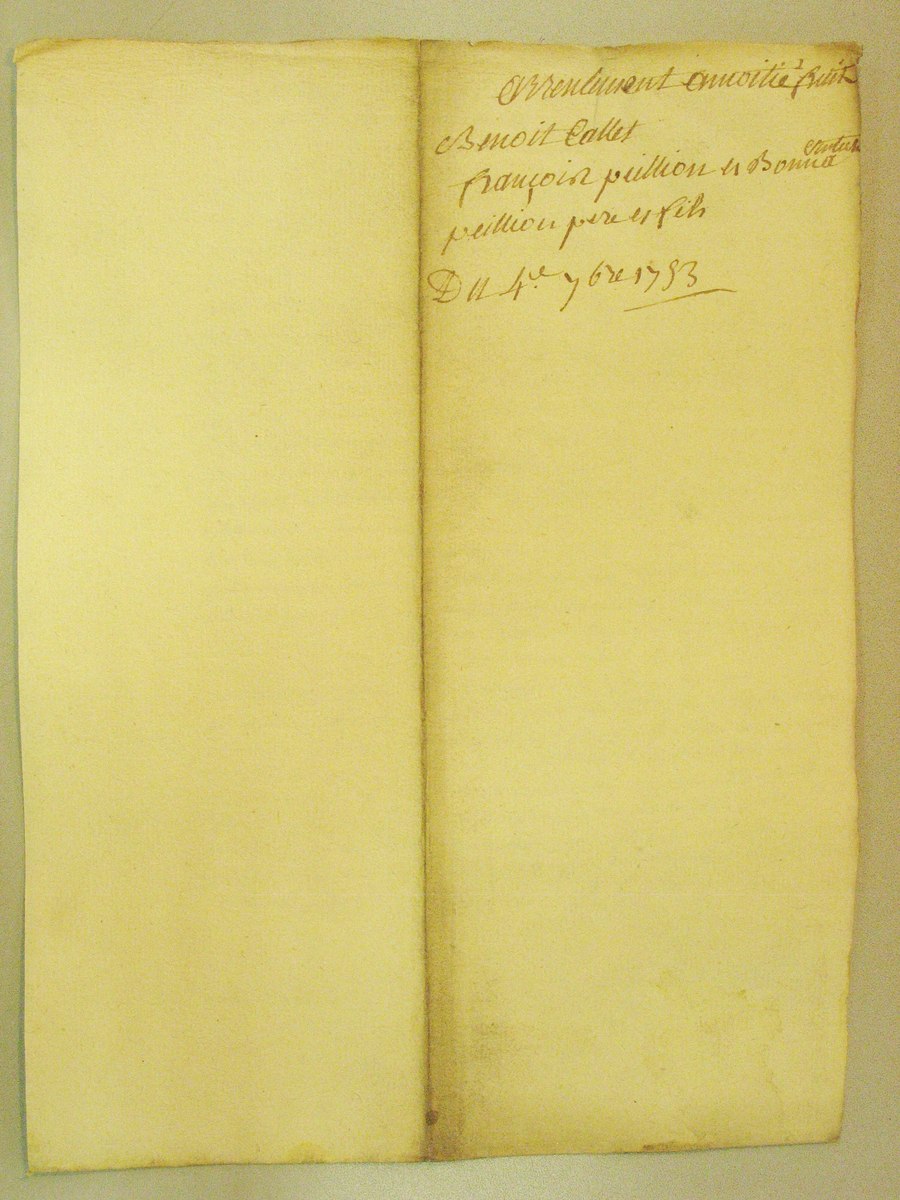 Arrentement amoitié fruit
Benoit Callet
françois peillion et Bonna
peillion pere et fils
Du 4e 7bre 1793